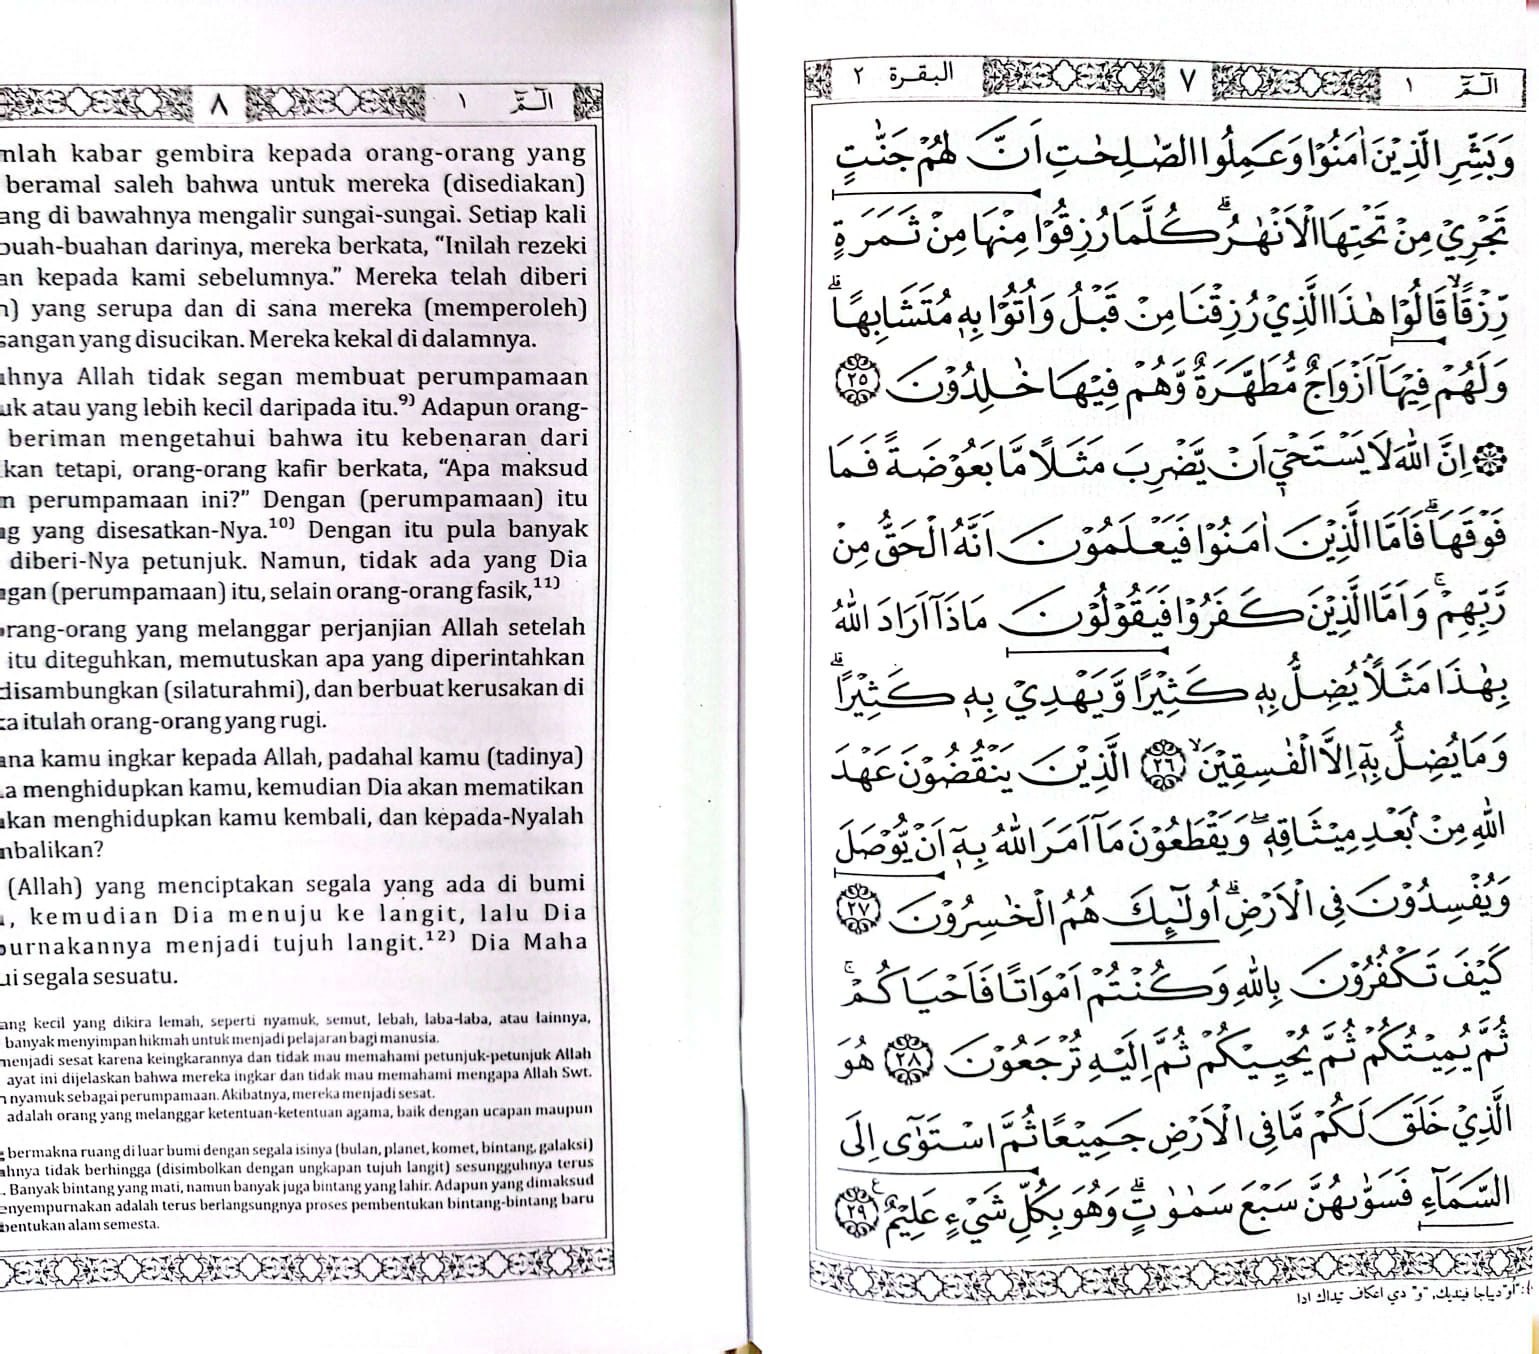 الۤمّۤ ١
٧
البقرة ٢
وَبَشِّرِ الَّذِيْنَ اٰمَنُوْا وَعَمِلُوا الصّٰلِحٰتِ اَنَّ لَهُمْ جَنّٰتٍ
تَجْرِيْ مِنْ تَحْتِهَا الْاَنْهٰرُ ۗ كُلَّمَا رُزِقُوْا مِنْهَا مِنْ ثَمَرَةٍ
رِّزْقًا ۙ قَالُوْا هٰذَا الَّذِيْ رُزِقْنَا مِنْ قَبْلُ وَاُتُوْا بِهٖ مُتَشَابِهًا ۗ
وَلَهُمْ فِيْهَآ اَزْوَاجٌ مُّطَهَّرَةٌ وَّهُمْ فِيْهَا خٰلِدُوْنَ ٢٥
۞ اِنَّ اللّٰهَ لَا يَسْتَحْيٖٓ اَنْ يَّضْرِبَ مَثَلًا مَّا بَعُوْضَةً فَمَا
فَوْقَهَا ۗ فَاَمَّا الَّذِيْنَ اٰمَنُوْا فَيَعْلَمُوْنَ اَنَّهُ الْحَقُّ مِنْ
رَّبِّهِمْ ۚ وَاَمَّا الَّذِيْنَ كَفَرُوْا فَيَقُوْلُوْنَ مَاذَآ اَرَادَ اللّٰهُ
بِهٰذَا مَثَلًا ۘ يُضِلُّ بِهٖ كَثِيْرًا وَّيَهْدِيْ بِهٖ كَثِيْرًا ۗ
وَمَا يُضِلُّ بِهٖٓ اِلَّا الْفٰسِقِيْنَ ۙ ٢٦ الَّذِيْنَ يَنْقُضُوْنَ عَهْدَ
اللّٰهِ مِنْ ۢ بَعْدِ مِيْثَاقِهٖ ۖ وَيَقْطَعُوْنَ مَآ اَمَرَ اللّٰهُ بِهٖٓ اَنْ يُّوْصَلَ
وَيُفْسِدُوْنَ فِى الْاَرْضِ ۗ اُولٰۤىِٕكَ هُمُ الْخٰسِرُوْنَ ٢٧
كَيْفَ تَكْفُرُوْنَ بِاللّٰهِ وَكُنْتُمْ اَمْوَاتًا فَاَحْيَاكُمْ ۚ
ثُمَّ يُمِيْتُكُمْ ثُمَّ يُحْيِيْكُمْ ثُمَّ اِلَيْهِ تُرْجَعُوْنَ ٢٨ هُوَ
الَّذِيْ خَلَقَ لَكُمْ مَّا فِى الْاَرْضِ جَمِيْعًا ثُمَّ اسْتَوٰٓى اِلَى
السَّمَاۤءِ فَسَوّٰىهُنَّ سَبْعَ سَمٰوٰتٍ ۗ وَهُوَ بِكُلِّ شَيْءٍ عَلِيْمٌ ࣖ ٢٩
"او" دباچا فينديك، "و" دي اعكاف تيداك ادا
الۤمّۤ ١
٨
nlah kabar gembira kepada orang-orang yang
beramal saleh bahwa untuk mereka (disediakan)
ang di bawahnya mengalir sungai-sungai. Setiap kali
buah-buahan darinya, mereka berkata, “Inilah rezeki
an kepada kami sebelumnya.” Mereka telah diberi
n) yang serupa dan di sana mereka (memperoleh)
sangan yang disucikan. Mereka kekal di dalamnya.
ahnya Allah tidak segan membuat perumpamaan
uk atau yang lebih kecil daripada itu.9) Adapun orang-
beriman mengetahui bahwa itu kebenaran dari
kan tetapi, orang-orang kafir berkata, “Apa maksud
n perumpamaan ini?” Dengan (perumpamaan) itu
ng yang disesatkan-Nya.10) Dengan itu pula banyak
diberi-Nya petunjuk. Namun, tidak ada yang Dia
ngan (perumpamaan) itu, selain orang-orang fasik,11)
orang-orang yang melanggar perjanjian Allah setelah
itu diteguhkan, memutuskan apa yang diperintahkan
disambungkan (silaturahmi), dan berbuat kerusakan di
ka itulah orang-orang yang rugi.
ana kamu ingkar kepada Allah, padahal kamu (tadinya)
a menghidupkan kamu, kemudian Dia akan mematikan
akan menghidupkan kamu kembali, dan kepada-Nyalah
mbalikan?
(Allah) yang menciptakan segala yang ada di bumi
, kemudian Dia menuju ke langit, lalu Dia
purnakannya menjadi tujuh langit.12) Dia Maha
ui segala sesuatu.
ang kecil yang dikira lemah, seperti nyamuk, semut, lebah, laba-laba, atau lainnya,
banyak menyimpan hikmah untuk menjadi pelajaran bagi manusia.
menjadi sesat karena keingkarannya dan tidak mau memahami petunjuk-petunjuk Allah
ayat ini dijelaskan bahwa mereka ingkar dan tidak mau memahami mengapa Allah Swt.
n nyamuk sebagai perumpamaan. Akibatnya, mereka menjadi sesat.
adalah orang yang melanggar ketentuan-ketentuan agama, baik dengan ucapan maupun
bermakna ruang di luar bumi dengan segala isinya (bulan, planet, komet, bintang, galaksi)
ahnya tidak berhingga (disimbolkan dengan ungkapan tujuh langit) sesungguhnya terus
. Banyak bintang yang mati, namun banyak juga bintang yang lahir. Adapun yang dimaksud
enyempurnakan adalah terus berlangsungnya proses pembentukan bintang-bintang baru
bentukan alam semesta.